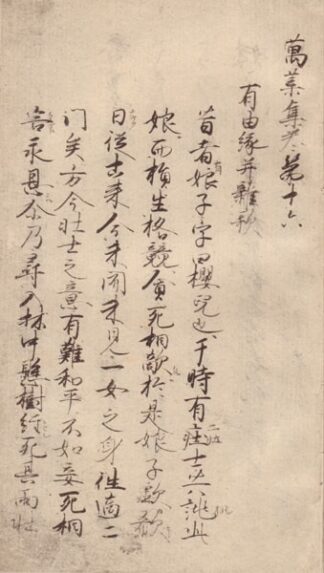 萬葉集巻第十六
有由縁并雜歌
昔者有娘子字曰櫻兒也于時有二壮士共誂此
娘而損生格競貪死相敵於是娘子歔欷
曰従古来今未聞未見一女之身往適二
門矣方今壮士之意有難和平不如妾死相
害永息尒乃尋入林中懸樹経死其両壮